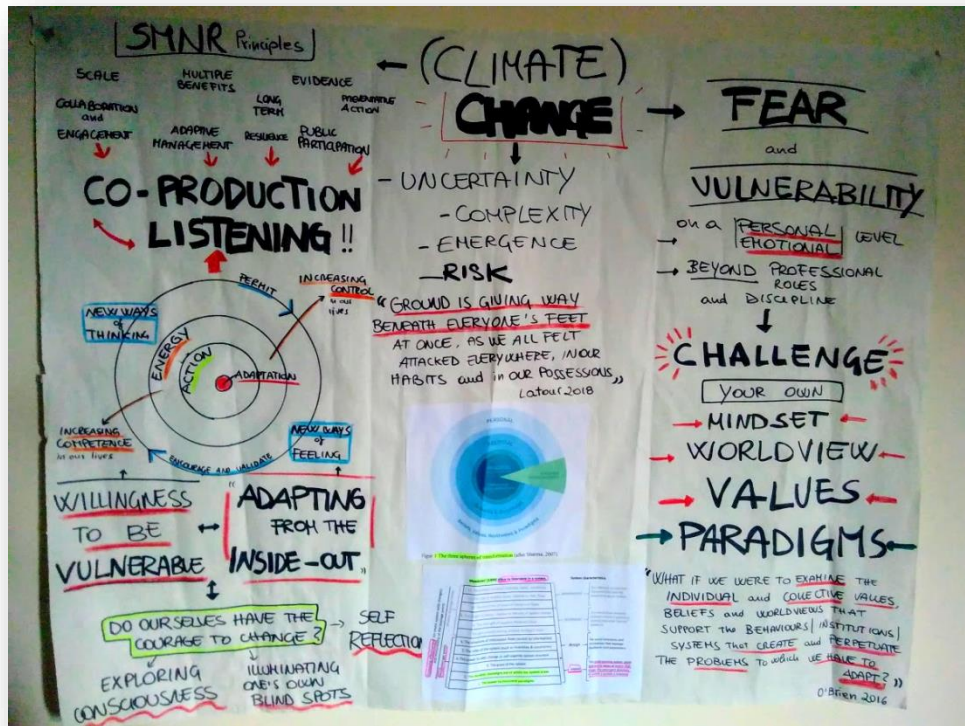 SMNR Principles
SCALE
MULTIPLE
BENEFITS
EVIDENCE
COLLABORATION
and
ENGAGEMENT
ADAPTIVE
MANAGEMENT
LONG
TERM
RESILIENCE
PREVENTATIVE
ACTION
PUBLIC
PARTICIPATION
CO-PRODUCTION
LISTENING!!
PERMIT
INCREASING
CONTROL
in our
lives
NEW WAYS
of
THINKING
ENERGY
ACTION
ADAPTATION
INCREASING
COMPETENCE
in our lives
NEW WAYS
of
FEELING
ENCOURAGE AND VALIDATE
WILLINGNESS
TO BE
VULNERABLE
"ADAPTING
FROM THE
INSIDE-OUT"
DO OURSELVES HAVE THE
COURAGE TO CHANGE?
SELF
REFLECTION
EXPLORING
CONSCIOUSNESS
ILLUMINATING
ONE'S OWN
BLIND SPOTS
(CLIMATE)
CHANGE
- UNCERTAINTY
- COMPLEXITY
- EMERGENCE
- RISK
"GROUND IS GIVING WAY
BENEATH EVERYONE'S FEET
AT ONCE, AS WE ALL FELT
ATTACKED EVERYWHERE, IN OUR
HABITS and in OUR POSSESSIONS"
Latour 2018
PERSONAL
FEAR
and
VULNERABILITY
on a PERSONAL LEVEL
EMOTIONAL
BEYOND PROFESSIONAL
ROLES
and DISCIPLINE
CHALLENGE
YOUR OWN
MINDSET
WORLDVIEW
VALUES
PARADIGMS
"WHAT IF WE WERE TO EXAMINE THE
INDIVIDUAL and COLECTIVE VALUES,
BELIEFS and WORLDVIEWS THAT
SUPPORT the BEHAVIOURS| INSTITUTIONS|
SYSTEMS that CREATE and PERPETUATE
THE PROBLEMS to which WE HAVE TO
ADAPT?"
O'BRIEN 2016